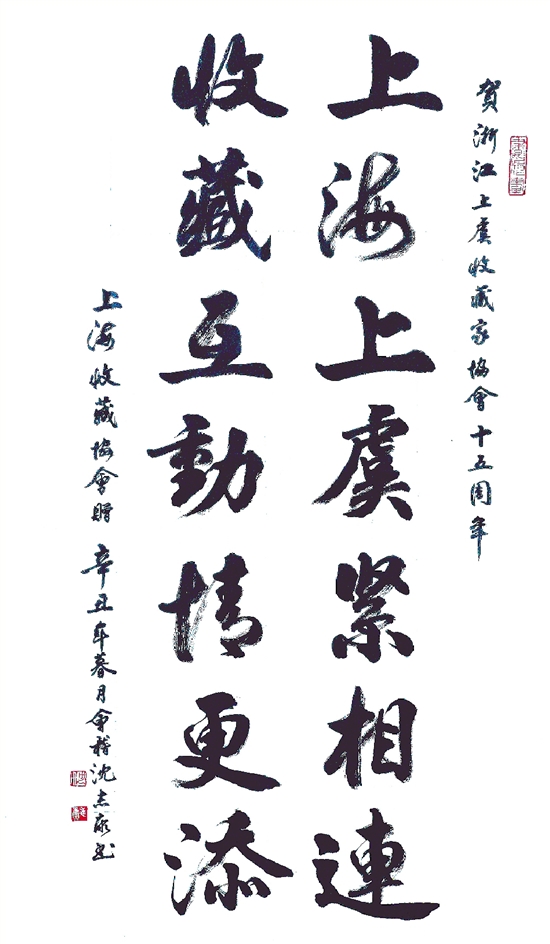 賀浙江上虞收藏家協會十五周年
上海上虞緊相連
收藏互動情更添
上海收藏協會贈 辛丑年暮月會稽沈志康书